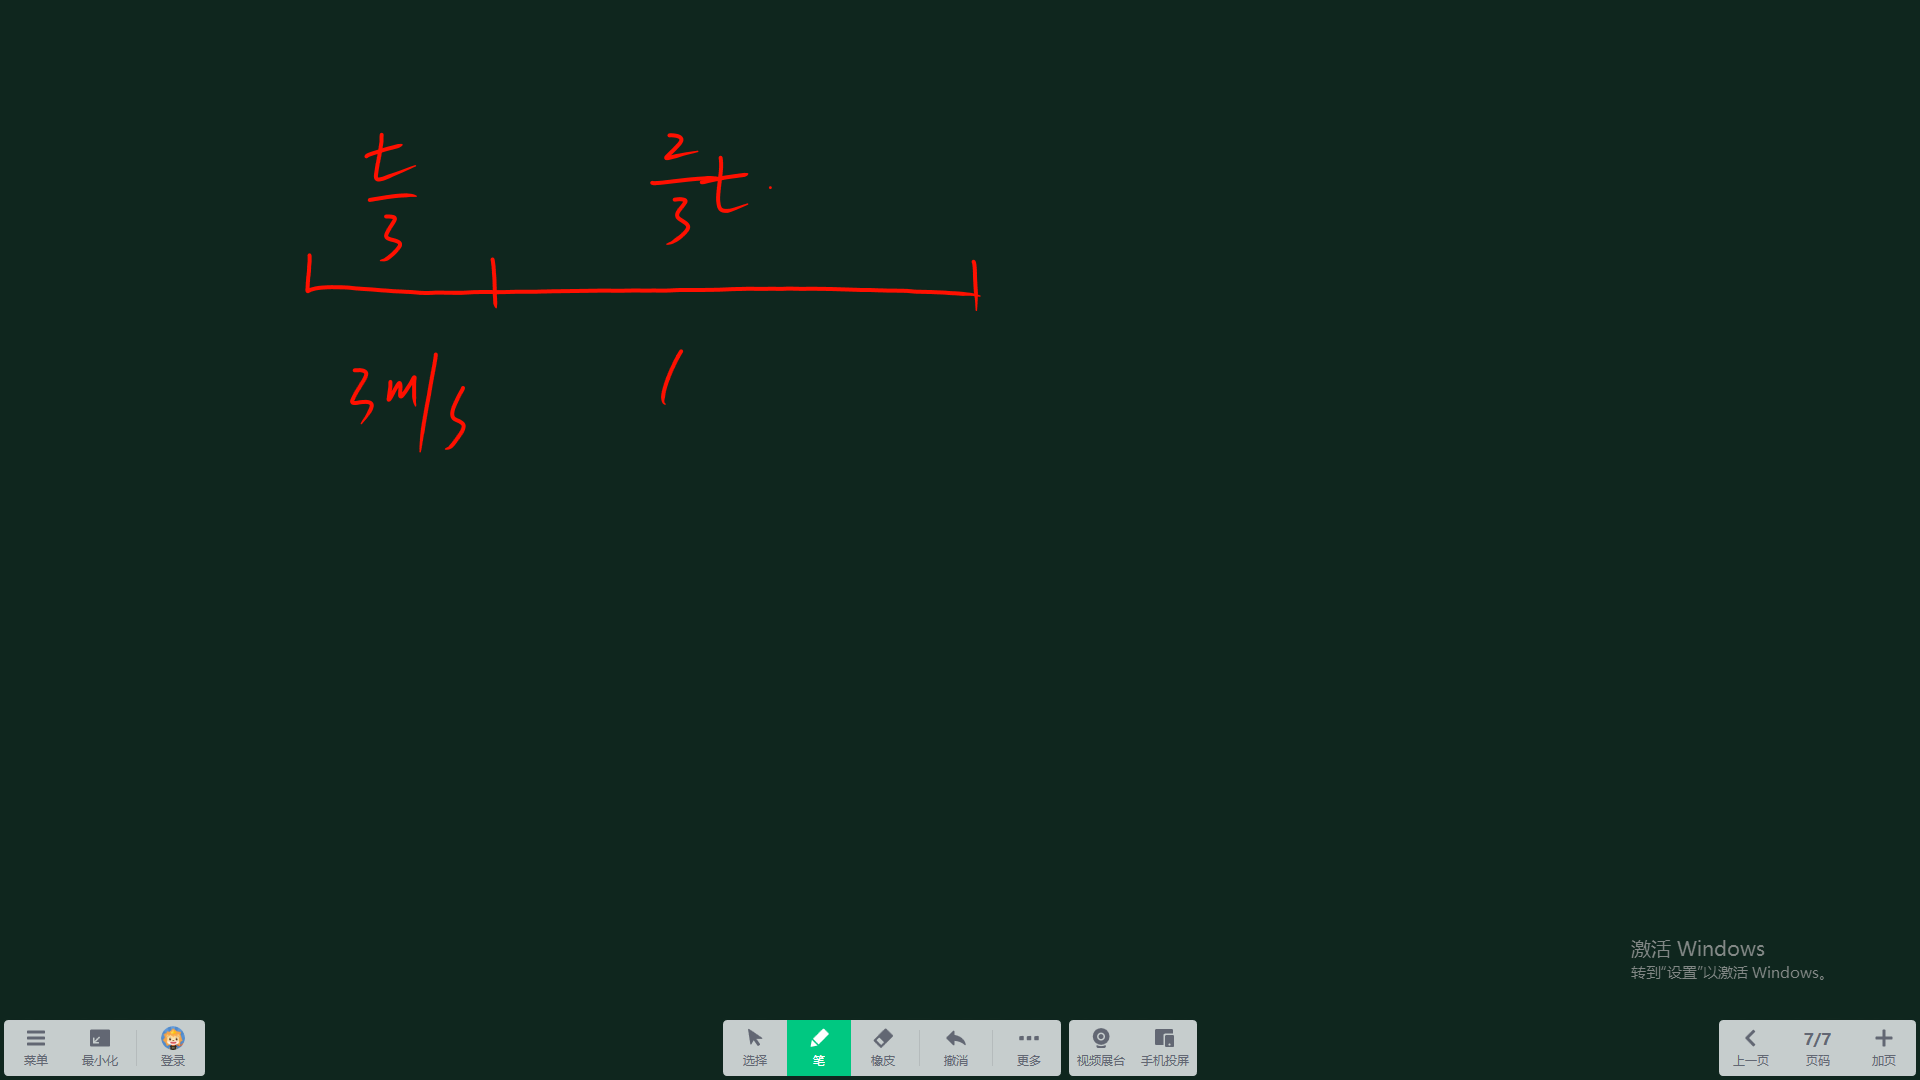 t/3 2/3 t.
3m/s (
激活 Windows
转到“设置”以激活 Windows。
菜单 最小化 登录 选择 笔 橡皮 撤消 更多 视频展台 手机投屏 上一页 7/7 页码 加页